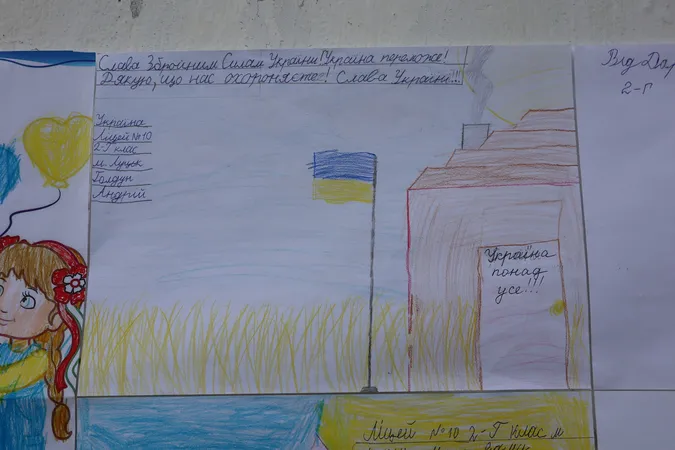 Слава Збройним Силам України! Україна переможе!
Дякую, що нас охороняєте! Слава Україні!!!
Україна
Ліцей №10
2-Г клас
м. Луцьк
Голдун
Андрій
Україна
понад
усе!!!
Від
2-Г
Ліцей №10 2-Г клас м